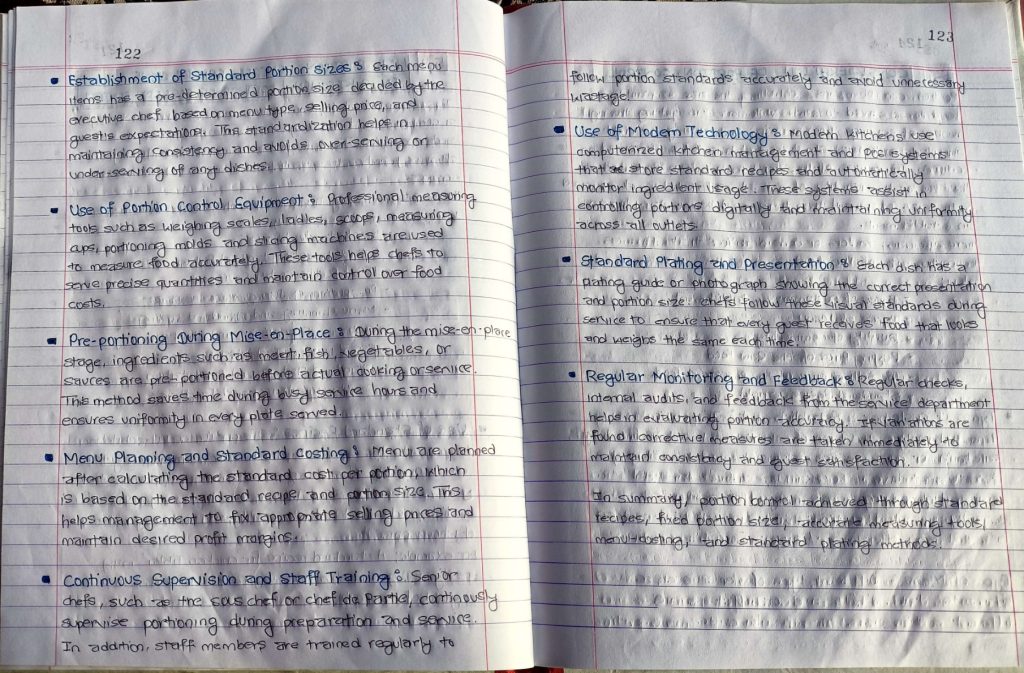 122
• Establishment of Standard Portion Sizes : Each menu
items has a pre-determined portion size decided by the
executive chef based on menu type, selling price, and
guest's expectations. This standardization helps in
maintaining consistency and avoids over-serving or
under-serving of any dishes.
• Use of Portion Control Equipment : Professional measuring
tools such as weighing scales, ladles, scoops, measuring
cups, portioning molds and slicing machines are used
to measure food accurately. These tools helps chefs to
serve precise quantities and maintain control over food
costs.
• Pre-portioning During Mise-en-Place : During the mise-en-place
stage, ingredients such as meat, fish, vegetables, or
sauces are pre-portioned before actual cooking or service.
This method saves time during busy service hours and
ensures uniformity in every plate served.
• Menu Planning and Standard Costing : Menu are planned
after calculating the standard cost per portion, which
is based on the standard recipe and portion size. This
helps management to fix appropriate selling prices and
maintain desired profit margins.
• Continuous Supervision and Staff Training : Senior
chefs, such as the sous chef or chef de Partie, continously
supervise portioning during preparation and service.
In addition, staff members are trained regularly to
123
follow portion standards accurately and avoid unnecessary
wastage.
• Use of Modern Technology : Modern kitchens use
computerized kitchen management and systems
that store standard recipes and automatically
monitor ingredient usage. These systems assist in
controlling portions digitally and maintaining uniformity
across all outlets.
• Standard Plating and Presentation : Each dish has a
plating guide or photograph showing the correct presentation
and portion size. Chefs follow these visual standards during
service to ensure that every guest receives food that looks
and weighs the same each time.
• Regular Monitoring and Feedback : Regular checks,
internal audits, and feedback from the service department
helps in evaluating portion accuracy. If variations are
found, corrective measures are taken immediately to
maintain consistency and guest satisfaction.
In summary, portion control achieved through standard
recipes, fixed portion size, accurate measuring tools,
menu costing, and standard plating methods.